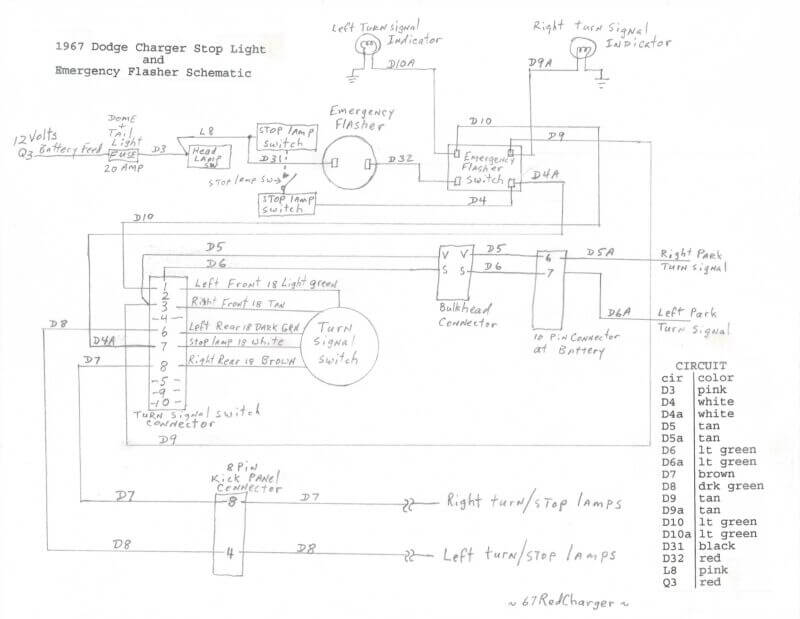 1967 Dodge Charger Stop Light
and
Emergency Flasher Schematic
Left Turn signal
Indicator
Right turn Signal
Indicator
D10A
D9A
12 Volts
Q3 Battery Feed
DOME
+
Tail
Light
FUSE
20 AMP
D3
L8
Head
LAMP
SW
STOP lamp
Switch
D31
STOP lamp SW
STOP lamp
Switch
Emergency
Flasher
D32
D10
D9
Emergency
Flasher
Switch
D4A
D4
D10
D5
D6
V V
S S
Bulkhead
Connector
D5
D6
6
7
10 Pin Connector
at Battery
D5A
D6A
Right Park
Turn Signal
Left Park
Turn Signal
1
2
3
-4-
6
7
8
-5-
-9-
-10-
Left Front 18 Light green
Right Front 18 TAN
Left Rear 18 DARK GRN
Stop lamp 18 White
Right Rear 18 BROWN
Turn
Signal
Switch
D8
D4A
D7
Turn Signal Switch
Connector
D9
8 Pin
Kick Panel
Connector
D7
8
D7
Right turn/STOP lamps
D8
4
D8
Left turn/STOP lamps
CIRCUIT
cir color
D3 pink
D4 white
D4a white
D5 tan
D5a tan
D6 lt green
D6a lt green
D7 brown
D8 drk green
D9 tan
D9a tan
D10 lt green
D10a lt green
D31 black
D32 red
L8 pink
Q3 red
~67RedCharger~